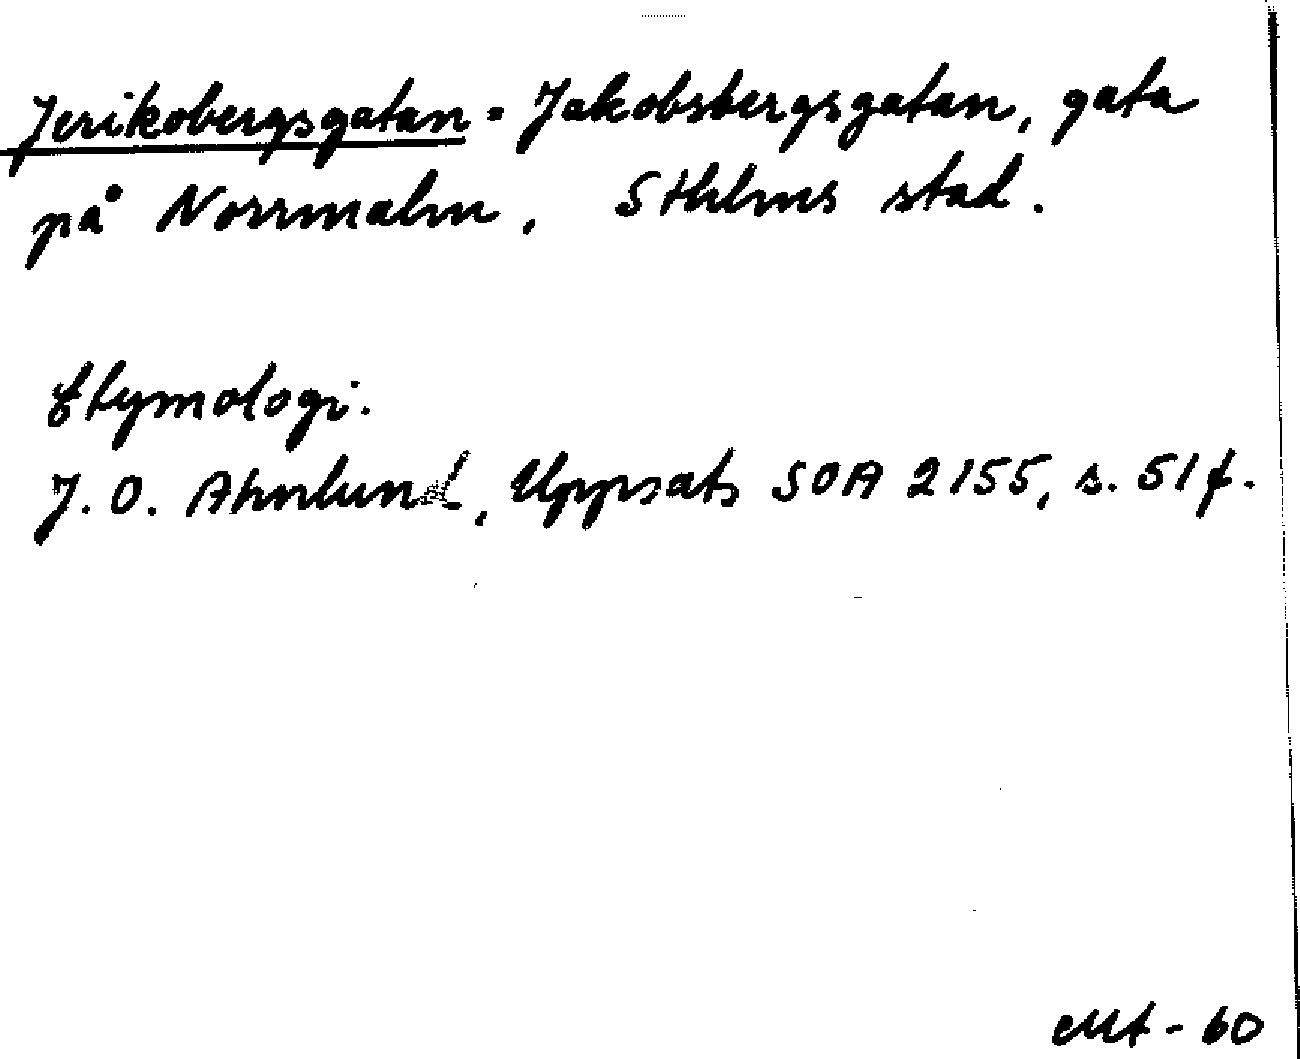 Jerikobergsgatan = Jakobsbergsgatan, gata
på Norrmalm, Sthlms stad.
Etymologi.
J. O. Ahnlund, Uppsats SOA 2155, s. 51 f.
Mt - 60